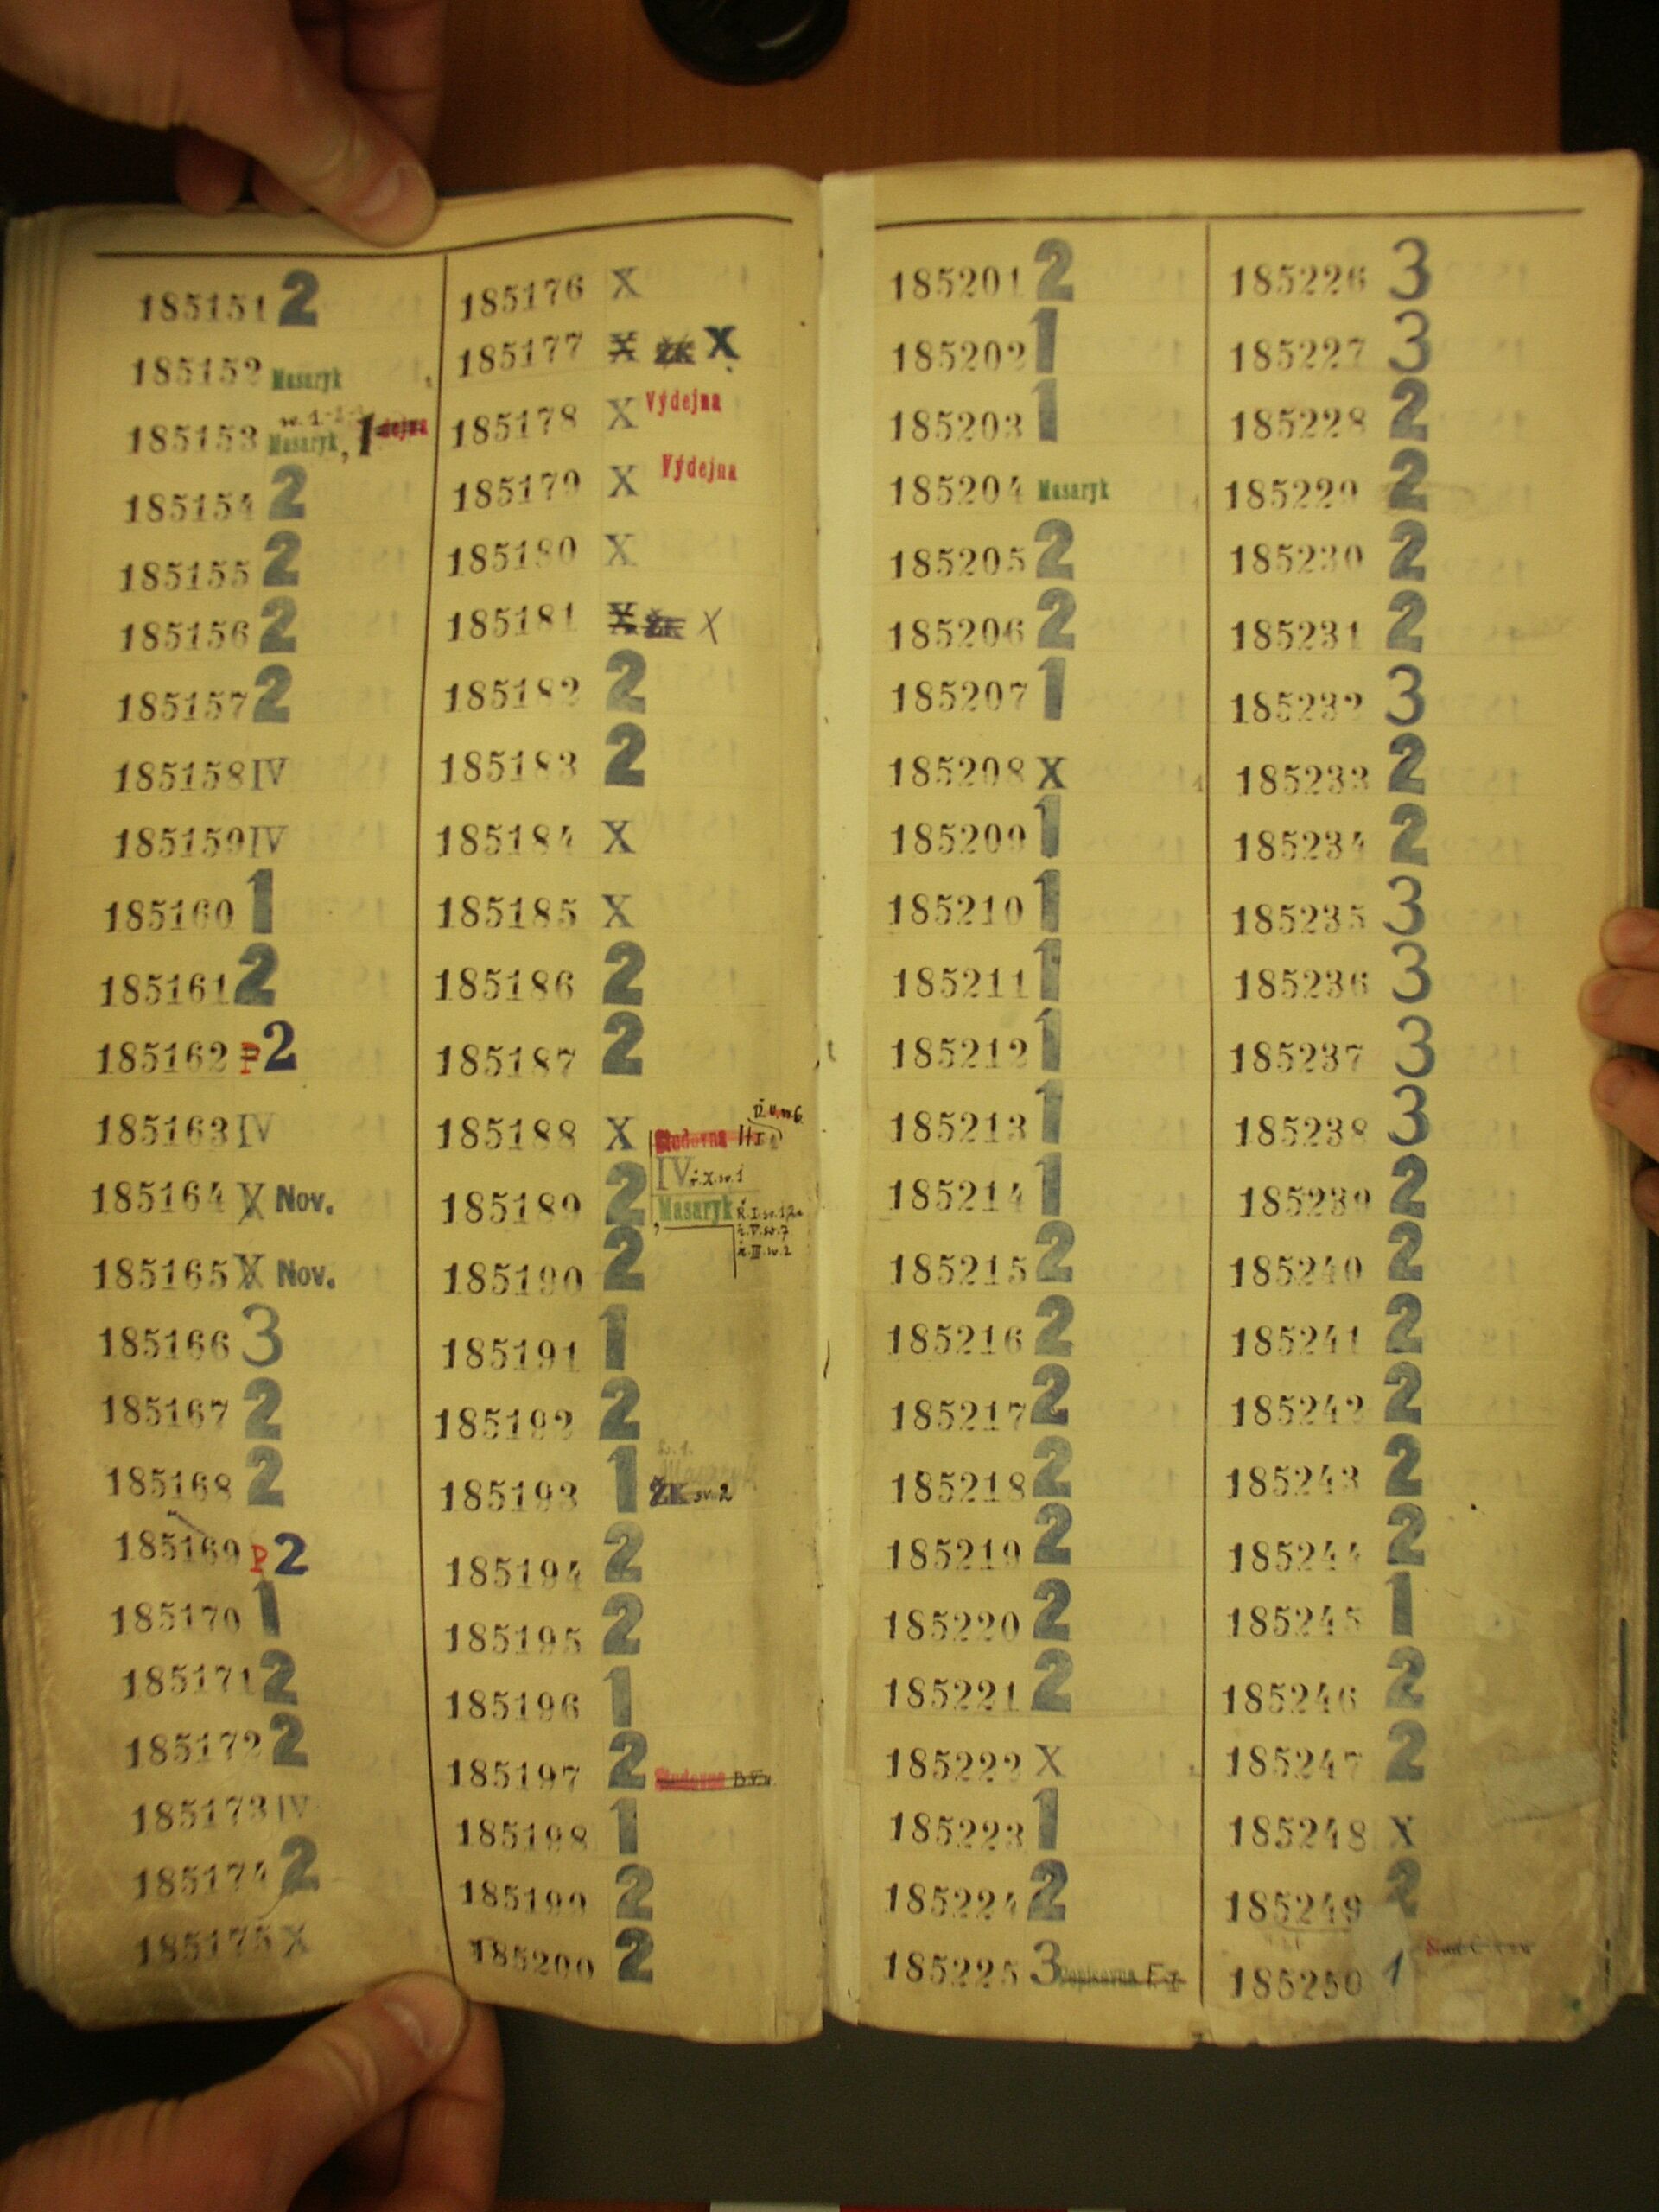 185151 2
185152 Masaryk
185153 Masaryk, 1
185154 2
185155 2
185156 2
185157 2
185158 IV
185159 IV
185160 1
185161 2
185162 P 2
185163 IV
185164 X Nov.
185165 X Nov.
185166 3
185167 2
185168 2
185169 P 2
185170 1
185171 2
185172 2
185173 IV
185174 2
185175 X
185176 X
185177 X ŽK X
185178 X Výdejna
185179 X Výdejna
185180 X
185181 X ŽK X
185182 2
185183 2
185184 X
185185 X
185186 2
185187 2
185188 X Studovna
IV ř.X.sv.1
185189 2, Masaryk
ř.V.sv.7
ř.III.sv.2
185190 2
185191 1
185192 2
185193 1 ŽK sv.2
185194 2
185195 2
185196 1
185197 2 Studovna
185198 1
185199 2
185200 2
185201 2
185202 1
185203 1
185204 Masaryk
185205 2
185206 2
185207 1
185208 X
185209 1
185210 1
185211 1
185212 1
185213 1
185214 1
185215 2
185216 2
185217 2
185218 2
185219 2
185220 2
185221 2
185222 X
185223 1
185224 2
185225 3
185226 3
185227 3
185228 2
185229 2
185230 2
185231 2
185232 3
185233 2
185234 2
185235 3
185236 3
185237 3
185238 3
185239 2
185240 2
185241 2
185242 2
185243 2
185244 2
185245 1
185246 2
185247 2
185248 X
185249 2
185250 1